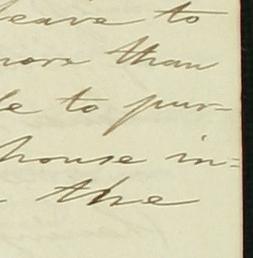 leave to
more than
le to pur-
house in=
the